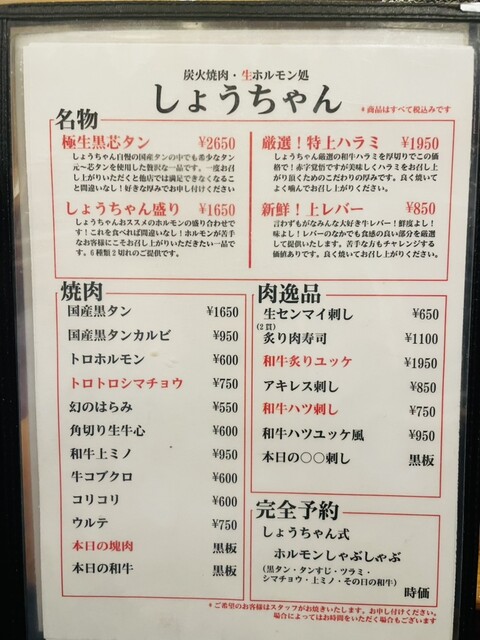 炭火焼肉・生ホルモン処
しょうちゃん
*商品はすべて税込みです
名物
極生黒芯タン ¥2650
しょうちゃん自慢の国産タンの中でも希少なタン
元～芯タンを使用した贅沢な一品です。一度お召
し上がりいただくと他店では満足できなくなるこ
と間違いなし!好きな厚みでお申し付けください
しょうちゃん盛り ¥1650
しょうちゃんおススメのホルモンの盛り合わせで
す!これを食べれば間違いなし!ホルモンが苦手
なお客様にこそお召し上がりいただきたい一品で
す。6種類2切れのご提供です。
厳選!特上ハラミ ¥1950
しょうちゃん厳選の和牛ハラミを厚切りでこの価
格で!赤字覚悟ですが美味しくハラミをお召し上
がり頂くためのこだわりの厚みです。良く焼いて
よく噛んでお召し上がりください。
新鮮!上レバー ¥850
言わずもがなみんな大好き牛レバー!鮮度よし!
味よし!レバーのなかでも食感の良い部分を厳選
して提供いたします。苦手な方もチャレンジする
価値ありです。良く焼いてお召し上がりください。
焼肉
国産黒タン ¥1650
国産黒タンカルビ ¥950
トロホルモン ¥600
トロトロシマチョウ ¥750
幻のはらみ ¥550
角切り生牛心 ¥600
和牛上ミノ ¥950
牛コブクロ ¥600
コリコリ ¥600
ウルテ ¥750
本日の塊肉 黒板
本日の和牛 黒板
肉逸品
生センマイ刺し ¥650
(2貫)
炙り肉寿司 ¥1100
和牛炙りユッケ ¥1950
アキレス刺し ¥850
和牛ハツ刺し ¥750
和牛ハツユッケ風 ¥950
本日の〇〇刺し 黒板
完全予約
しょうちゃん式
ホルモンしゃぶしゃぶ
(黒タン・タンすじ・ツラミ・
シマチョウ・上ミノ・その日の和牛)
時価
*ご希望のお客様はスタッフがお焼きいたします。お申し付けください。
場合によってはお時間をいただく場合もございます